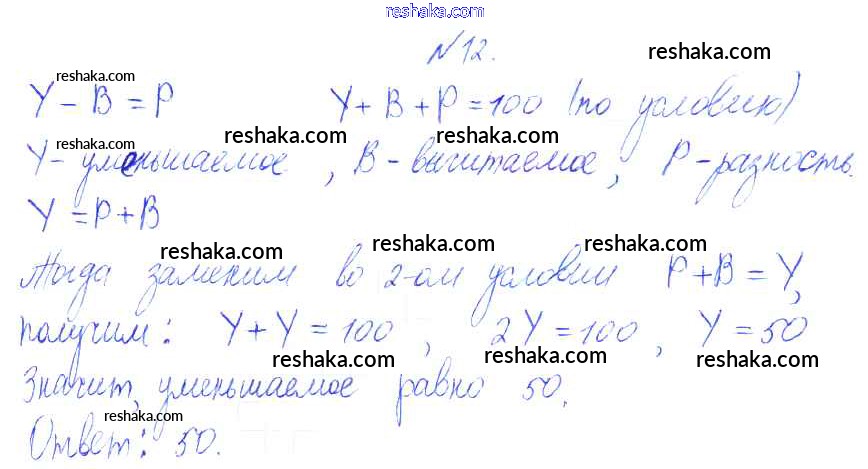 reshaka.com
N12. reshaka.com
reshaka.com
Y - B = P Y + B + P = 100 (по условию)
reshaka.com reshaka.com reshaka.com
Y - уменьшаемое, B - вычитаемое, P - разность.
Y = P + B
reshaka.com reshaka.com reshaka.com
Тогда заменим во 2-ом условии P + B = Y,
получим: Y + Y = 100, 2Y = 100, Y = 50
reshaka.com reshaka.com reshaka.com
Значит, уменьшаемое равно 50.
reshaka.com
Ответ: 50.